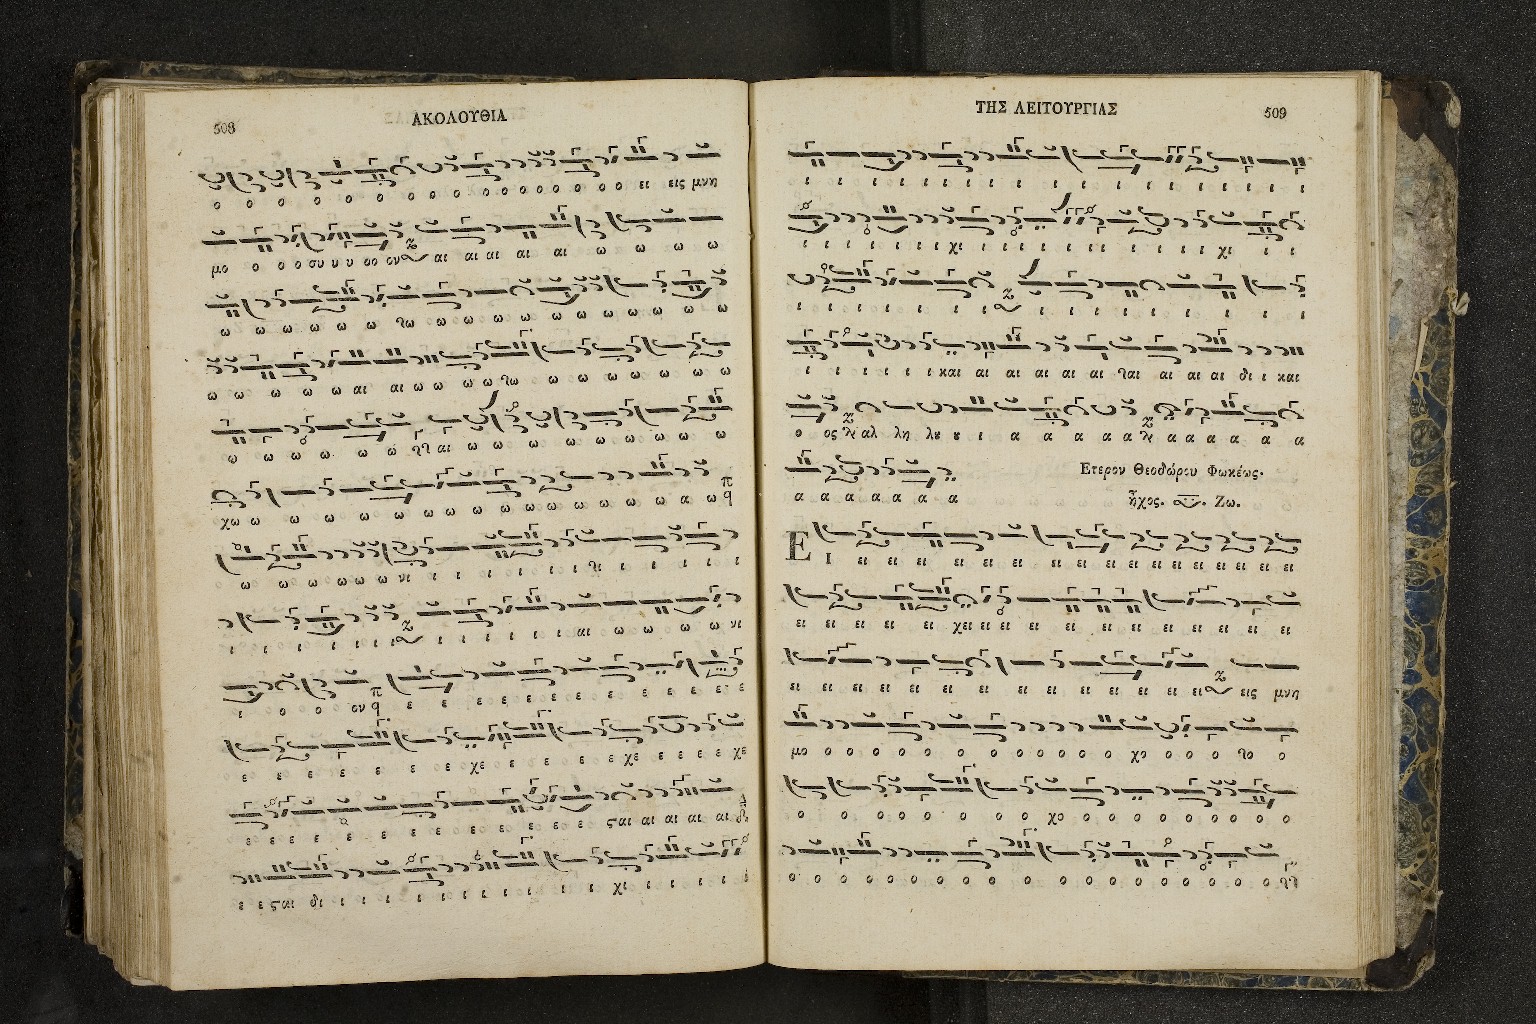 508 ΑΚΟΛΟΥΘΙΑ
ο ο ο ο ο ο ο ο ο ο ο ο ο ο ο ει εις μνη
μο ο ο ο συ υ υ οο ον αι αι αι αι αι ω ω ω ω
ω ω ω ω ω ω τω ω ω ω ω ω ω ω ω ω ω ω
ω ω ω ω ω αι αι ω ω ω ω τω ω ω ω ω ω ω ω
ω ω ω ω ω ω αι ω ω ω ω ω ω ω ω ω
χω ω ω ω ω ω ω ω ω ω ω ω ω ω ω ω ω
ω ω ω ω ω ω νι ι ι ι ι ι ι ι ι ι ι
ι ι ι ι ι ι ι ι ι ι ι ι αι ω ω ω ω νι
ι ο ο ον ε ε ε ε ε ε ε ε ε ε ε
ε ε ε ε ε ε ε χε ε ε ε ε χε ε ε ε ε χε
ε ε ε ε ε ε ε ε ε ε ε ε ϛαι αι αι αι αι αι
ε ε ϛαι δι ι ι ι ι ι ι ι ι ι ι χι ι ι ι ι
ΤΗΣ ΛΕΙΤΟΥΡΓΙΑΣ 509
ι ι ι ι ι ι ι ι ι ι ι ι ι ι ι ι ι
ι ι ι ι ι ι ι χι ι ι ι ι ι ι ι ι ι ι ι χι ι ι
ι ι ι ι ι ι ι ι ι ι ι ι ι ι ι ι
ι ι ι ι ι και αι αι αι αι αι ται αι αι αι δι ι και
ο ος αλ λη λου ου ι α α α α α α α α α α α
α α α α α α α
Ετερον Θεοδώρου Φωκέως.
ἦχος. Ζω.
Ε Ι ει ει ει ει ει ει ει ει ει ει ει ει ει ει ει
ει ει ει ει ει χει ει ει ει ει ει ει ει ει ει ει ει
ει ει ει ει ει ει ει ει ει ει ει ει ει ει εις μνη
μο ο ο ο ο ο ο ο ο ο ο ο ο ο χο ο ο ο το ο
ο ο ο ο ο ο ο χο ο ο ο ο ο ο ο ο ο
ο ο ο ο ο ο ο ο ο ο ο ο ο ο ο ο ο ο ο ο